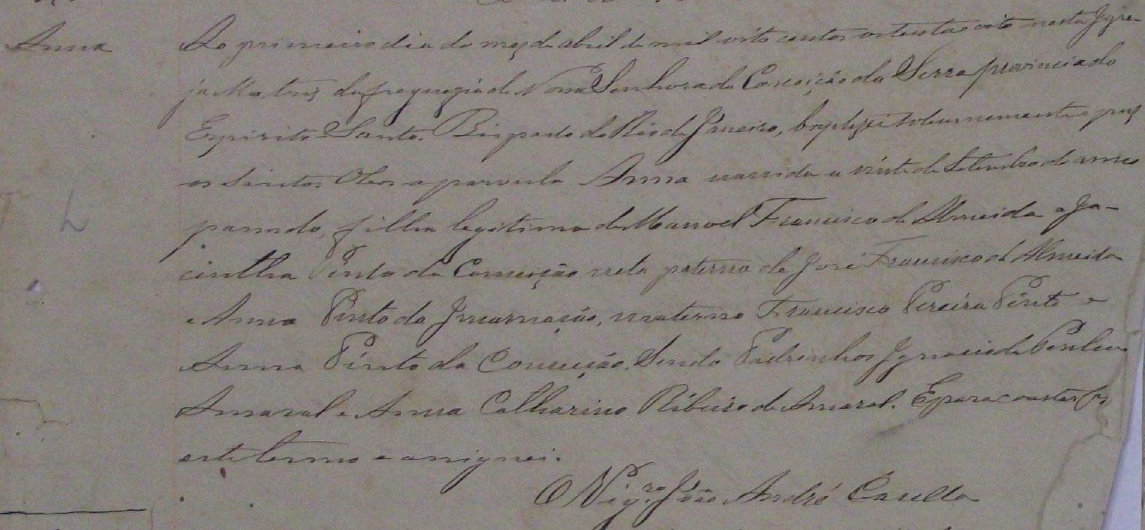 Anna
Ao primeiro dia do mez de abril de mil oito centos oitenta e oito nesta Igre-
ja Matriz da freguezia de Nossa Senhora da Conceição da Serra provincia do
Espirito Santo, Bispado do Rio de Janeiro, baptizei solemnemente e puz
os Santos Oleos a parvula Anna nascida a vinte de Setembro do anno
passado, filha legitima de Manoel Francisco de Almeida e Ja-
cintha Pinto da Conceição neta paterna de José Francisco de Almeida
e Anna Pinto da Incarnação, materna Francisco Pereira Pinto e
Anna Pinto da Conceição. Sendo Padrinhos Ignacio de
Amaral e Anna Catharina Ribeiro do Amaral. E para constar fiz
este termo e assignei.
O Vigro João André Casella